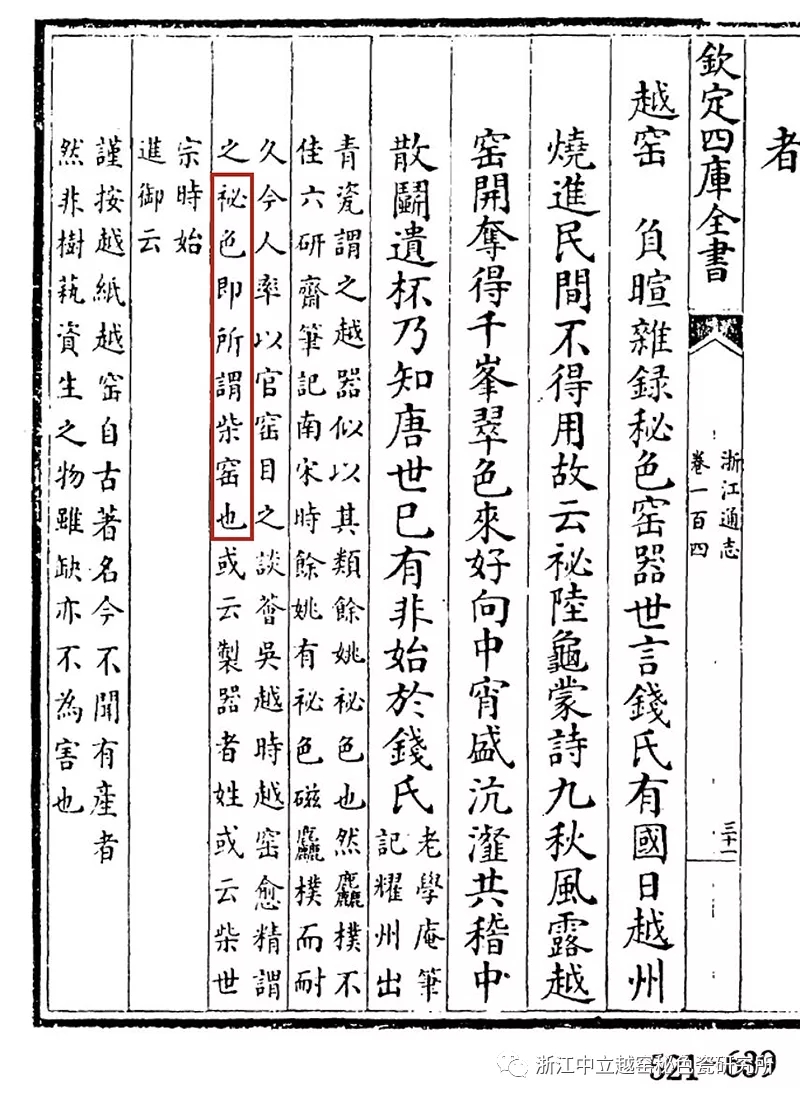 者
欽定四庫全書
浙江通志
卷一百四
三十一
越窑　負暄雜録秘色窑器世言錢氏有國日越州
燒進民間不得用故云祕陸龜蒙詩九秋風露越
窑開奪得千峯翠色來好向中宵盛沆瀣共稽中
散鬬遺杯乃知唐世已有非始於錢氏
老學庵筆
記耀州出
青瓷謂之越器似以其類餘姚祕色也然麤樸不
佳六研齋筆記南宋時餘姚有祕色磁麤樸而耐
久今人率以官窑目之談薈吳越時越窑愈精謂
之祕色即所謂柴窑也或云製器者姓或云柴世
宗時始
進御云
謹按越紙越窑自古著名今不聞有產者
然非樹蓺資生之物雖缺亦不為害也
浙江中立越窑秘色瓷研究所